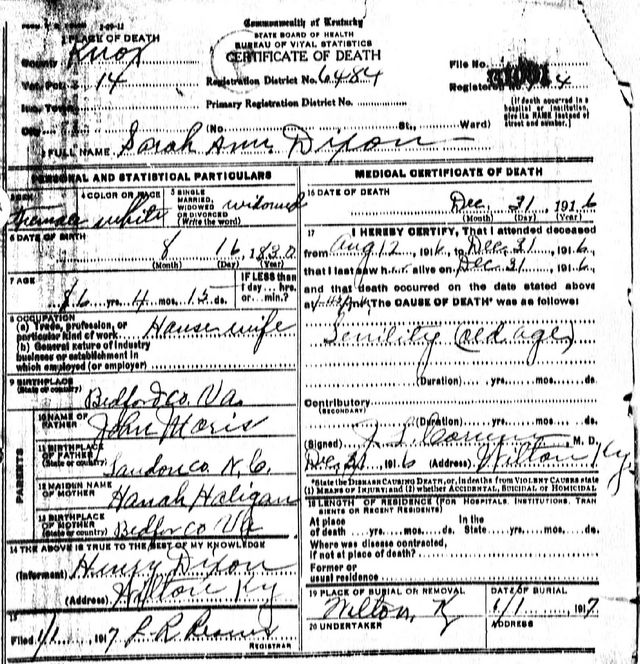 Commonwealth of Kentucky
STATE BOARD OF HEALTH
BUREAU OF VITAL STATISTICS
CERTIFICATE OF DEATH
1 PLACE OF DEATH
County Knox
Vot. Pct. 14
Inc. Town
City
Registration District No. 6484
Primary Registration District No.
(No. St., Ward)
File No.
Registered 4
[If death occurred in a hospital or institution, give its NAME instead of street and number.]
2 FULL NAME Sarah Ann Dixon
PERSONAL AND STATISTICAL PARTICULARS
3 SEX Female
4 COLOR OR RACE white
5 SINGLE, MARRIED, WIDOWED OR DIVORCED (Write the word) widowed
6 DATE OF BIRTH 8 16 1830
(Month) (Day) (Year)
7 AGE
86 yrs. 4 mos. 15 ds.
IF LESS than 1 day... hrs. or... min.?
8 OCCUPATION
(a) Trade, profession, or particular kind of work House wife
(b) General nature of industry business or establishment in which employed (or employer)
9 BIRTHPLACE (State or country) Bedford co. Va.
PARENTS
10 NAME OF FATHER John Moris
11 BIRTHPLACE OF FATHER (State or country) co. N.C.
12 MAIDEN NAME OF MOTHER Hanah Haligan
13 BIRTHPLACE OF MOTHER (State or country) Bedford co Va
14 THE ABOVE IS TRUE TO THE BEST OF MY KNOWLEDGE
(Informant) Henry Dixon
(Address) Wilton Ky
15
Filed 1/1, 1917 L R
REGISTRAR
MEDICAL CERTIFICATE OF DEATH
16 DATE OF DEATH
Dec. 31, 1916
(Month) (Day) (Year)
17 I HEREBY CERTIFY, That I attended deceased
from Aug 12, 1916, to Dec 31, 1916,
that I last saw h.. alive on Dec. 31, 1916,
and that death occurred on the date stated above
at M. The CAUSE OF DEATH* was as follows:
Senility (old age)
(Duration) yrs. mos. ds.
Contributory
(SECONDARY)
(Duration) yrs. mos. ds.
(Signed) M. D.
Dec 31 1916 (Address) Wilton Ky.
*State the DISEASE CAUSING DEATH, or, in deaths from VIOLENT CAUSES state
(1) MEANS OF INJURY; and (2) whether ACCIDENTAL, SUICIDAL or HOMICIDAL
18 LENGTH OF RESIDENCE (FOR HOSPITALS, INSTITUTIONS, TRANSIENTS OR RECENT RESIDENTS)
At place of death yrs. mos. ds. In the State yrs. mos. ds.
Where was disease contracted, if not at place of death?
Former or usual residence
19 PLACE OF BURIAL OR REMOVAL Wilton, Ky
DATE OF BURIAL 1/1, 1917
20 UNDERTAKER
ADDRESS